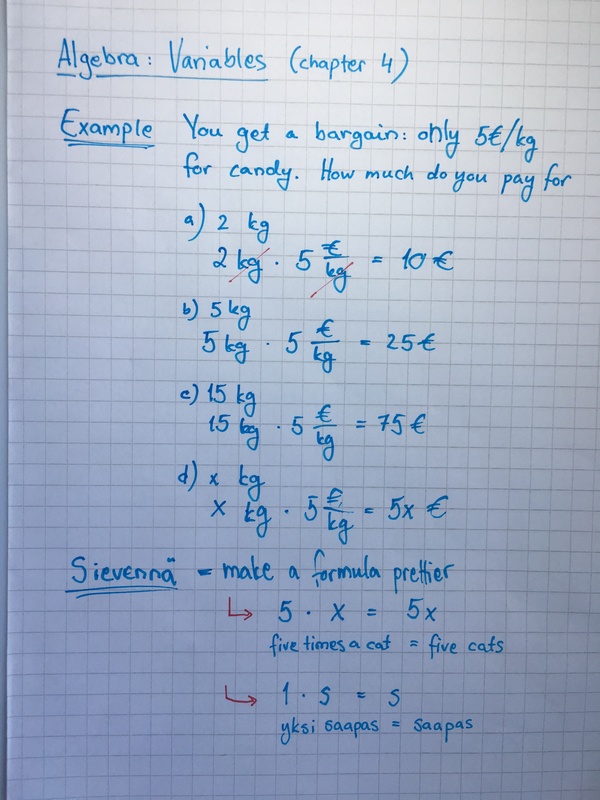 Algebra: Variables (chapter 4)
Example You get a bargain: only 5€/kg
for candy. How much do you pay for
a) 2 kg
2 kg · 5 €/kg = 10 €
b) 5 kg
5 kg · 5 €/kg = 25 €
c) 15 kg
15 kg · 5 €/kg = 75 €
d) x kg
x kg · 5 €/kg = 5x €
Sievennä = make a formula prettier
↳ 5 · x = 5x
five times a cat = five cats
↳ 1 · s = s
yksi saapas = saapas